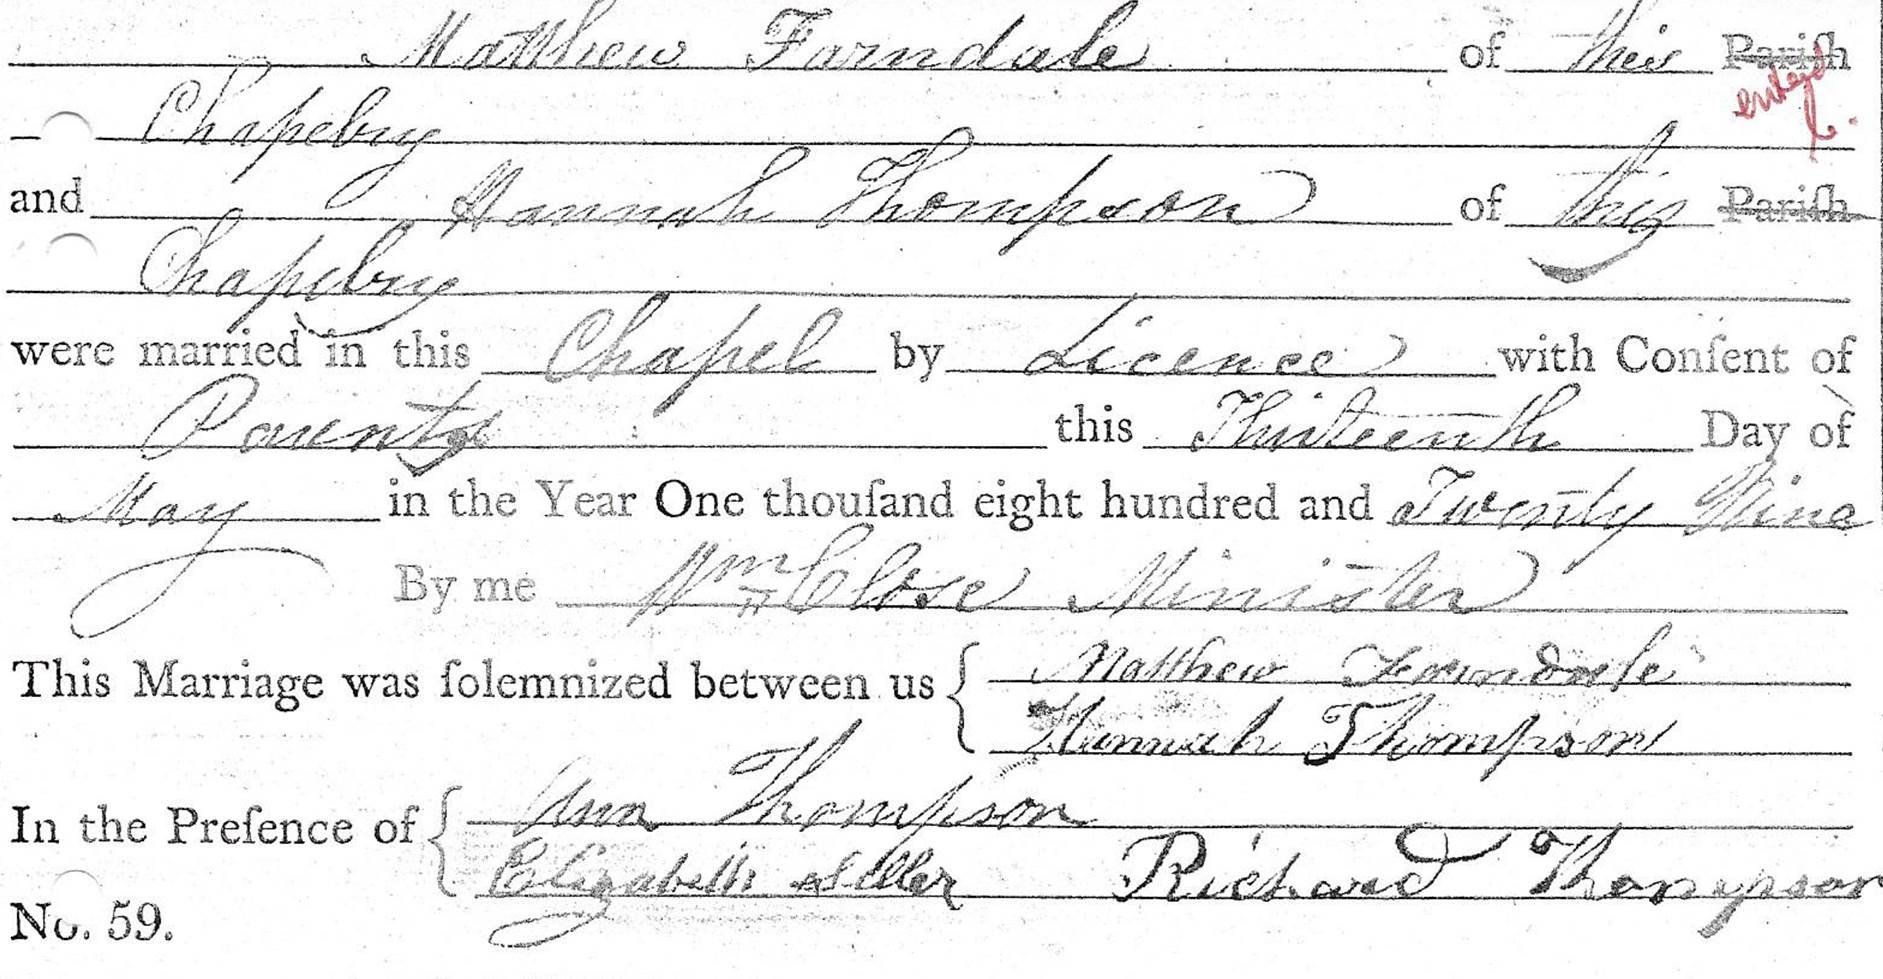 Matthew Farndale of this Pariſh
entered
Chapelry
and Hannah Thompson of this Pariſh
Chapelry
were married in this Chapel by Licence with Conſent of
Parents this Thirteenth Day of
May in the Year One thouſand eight hundred and Twenty Nine
By me Wm Close Minister
This Marriage was ſolemnized between us { Matthew Farndale
Hannah Thompson
In the Preſence of { Ann Thompson
Elizabeth Seller Richard Thompson
No. 59.